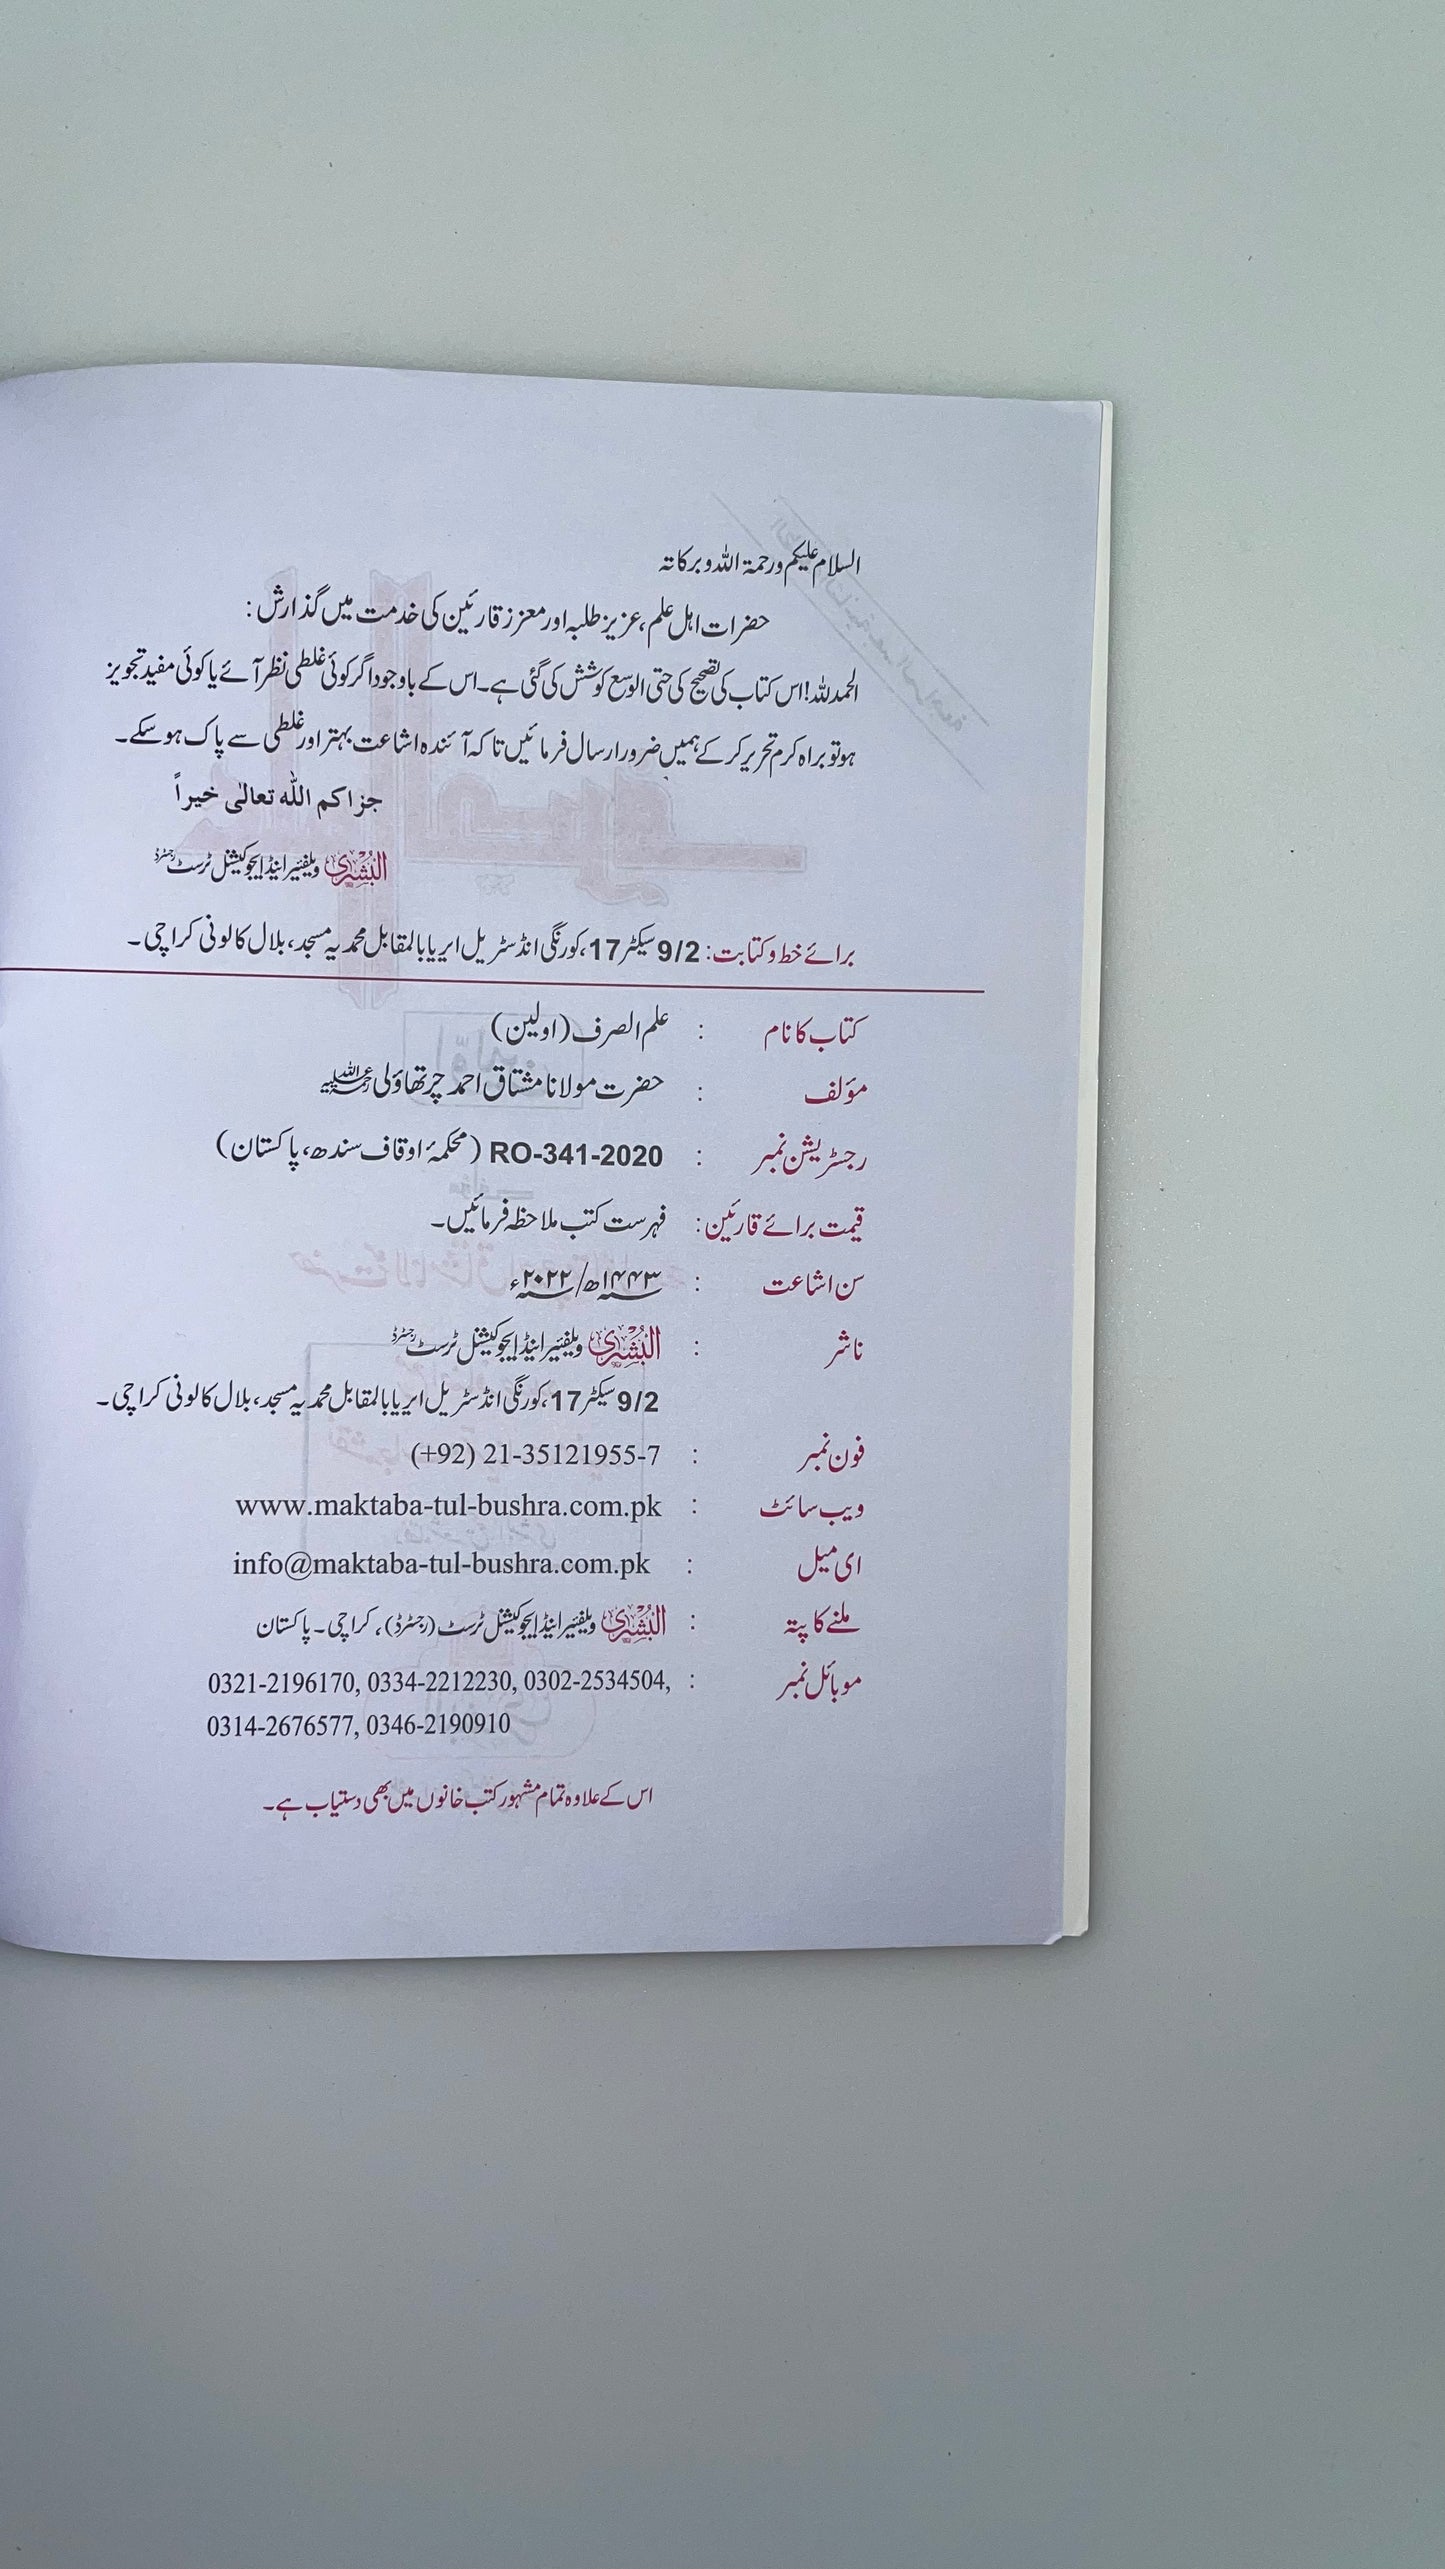 السلام علیکم ورحمۃ اللہ وبرکاتہ
حضرات اہل علم، عزیز طلبہ اور معزز قارئین کی خدمت میں گذارش:
الحمدللہ! اس کتاب کی تصحیح کی حتی الوسع کوشش کی گئی ہے۔ اس کے باوجود اگر کوئی غلطی نظر آئے یا کوئی مفید تجویز
ہو تو براہ کرم تحریر کر کے ہمیں ضرور ارسال فرمائیں تاکہ آئندہ اشاعت بہتر اور غلطی سے پاک ہو سکے۔
جزاکم اللہ تعالٰی خیراً
البُشریٰ ویلفیئر اینڈ ایجوکیشنل ٹرسٹ رجسٹرڈ
برائے خط و کتابت: 9/2 سیکٹر 17، کورنگی انڈسٹریل ایریا بالمقابل محمدیہ مسجد، بلال کالونی کراچی۔
کتاب کا نام : علم الصرف (اولین)
مؤلف : حضرت مولانا مشتاق احمد چرتھاؤلی رحمۃ اللہ علیہ
رجسٹریشن نمبر : RO-341-2020 (محکمۂ اوقاف سندھ، پاکستان)
قیمت برائے قارئین: فہرست کتب ملاحظہ فرمائیں۔
سن اشاعت : ۱۴۴۳ھ/ ۲۰۲۲ء
ناشر : البُشریٰ ویلفیئر اینڈ ایجوکیشنل ٹرسٹ رجسٹرڈ
9/2 سیکٹر 17، کورنگی انڈسٹریل ایریا بالمقابل محمدیہ مسجد، بلال کالونی کراچی۔
فون نمبر : (+92) 21-35121955-7
ویب سائٹ : www.maktaba-tul-bushra.com.pk
ای میل : info@maktaba-tul-bushra.com.pk
ملنے کا پتہ : البُشریٰ ویلفیئر اینڈ ایجوکیشنل ٹرسٹ (رجسٹرڈ)، کراچی۔ پاکستان
موبائل نمبر : 0321-2196170, 0334-2212230, 0302-2534504,
0314-2676577, 0346-2190910
اس کے علاوہ تمام مشہور کتب خانوں میں بھی دستیاب ہے۔